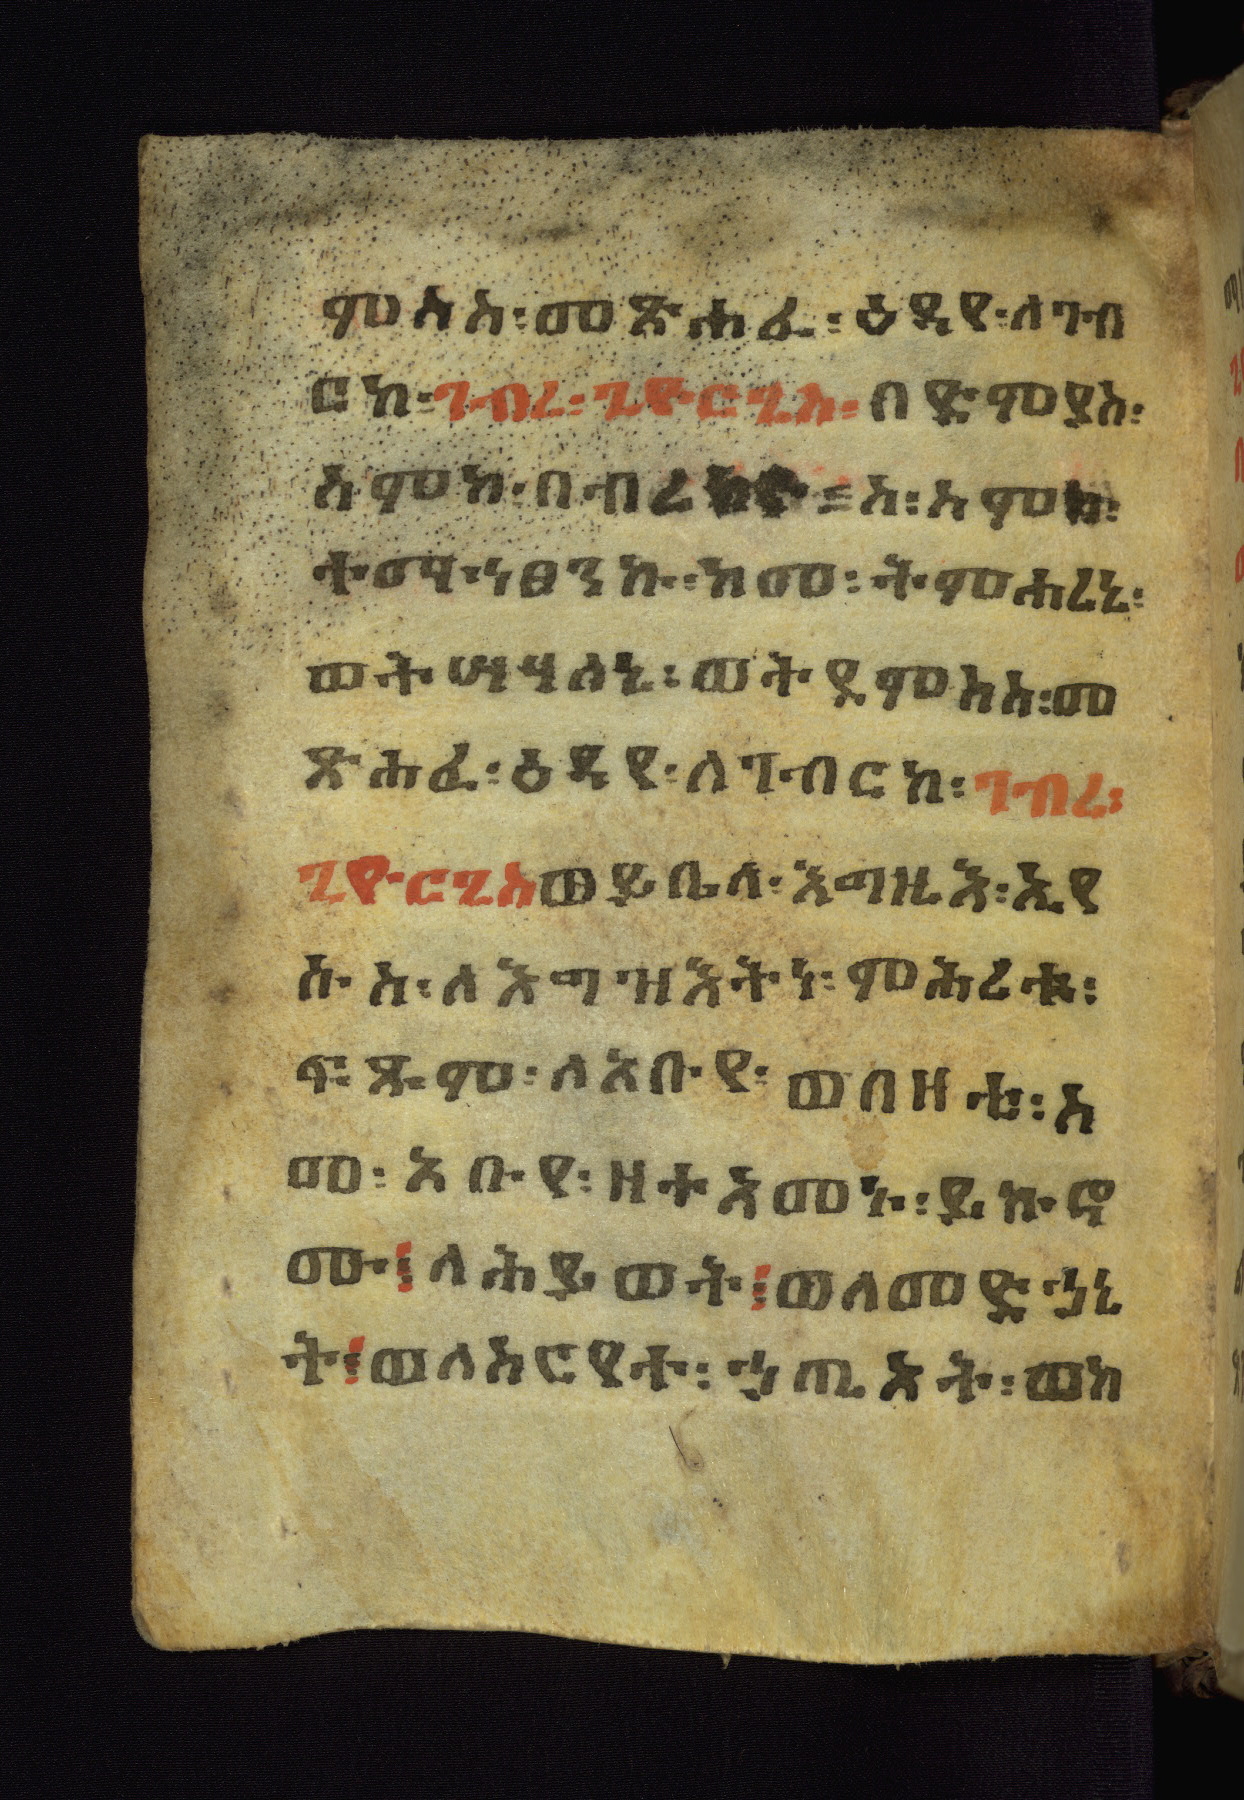 ምስለ፡ መጽሐፈ፡ ዕዳየ፡ ለገብ
ርከ፡ ገብረ፡ ጊዮርጊስ፡ በድምያስ፡
ስምከ፡ በብረ ስ፡ ስምከ፡
ተማኅፀንኩ፡ ከመ፡ ትምሐረኒ፡
ወትሣሃለኒ፡ ወትደምስስ፡ መ
ጽሐፈ፡ ዕዳየ፡ ለገብርከ፡ ገብረ፡
ጊዮርጊስ ወይቤለ፡ እግዚእ፡ ኢየ
ሱስ፡ ለእግዝእትነ፡ ምሕረቱ፡
ፍጹም፡ ለአቡየ፡ ወበዝቲ፡ አ
መ፡ አቡየ፡ ዘተአመኑ፡ ይኩኖ
ሙ፡ ለሕይወት፡ ወለመድኃኒ
ት፡ ወለስርየተ፡ ኃጢአት፡ ወከ